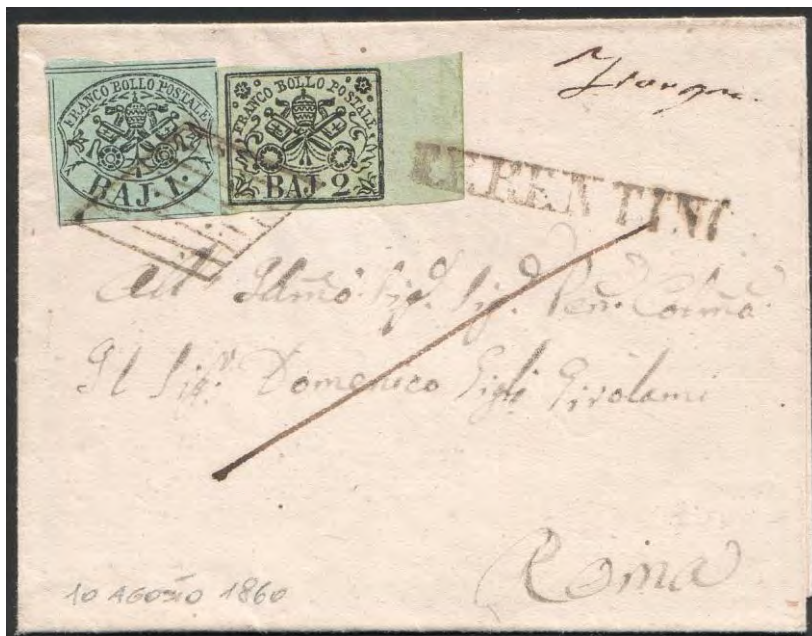 FRANCO BOLLO POSTALE
BAJ. 1.
FRANCO BOLLO POSTALE
BAJ. 2
FERENTINO
All' Sig.r Sig.
Il Sig.r Domenico Gigli Girolami
Roma
10 AGOSTO 1860